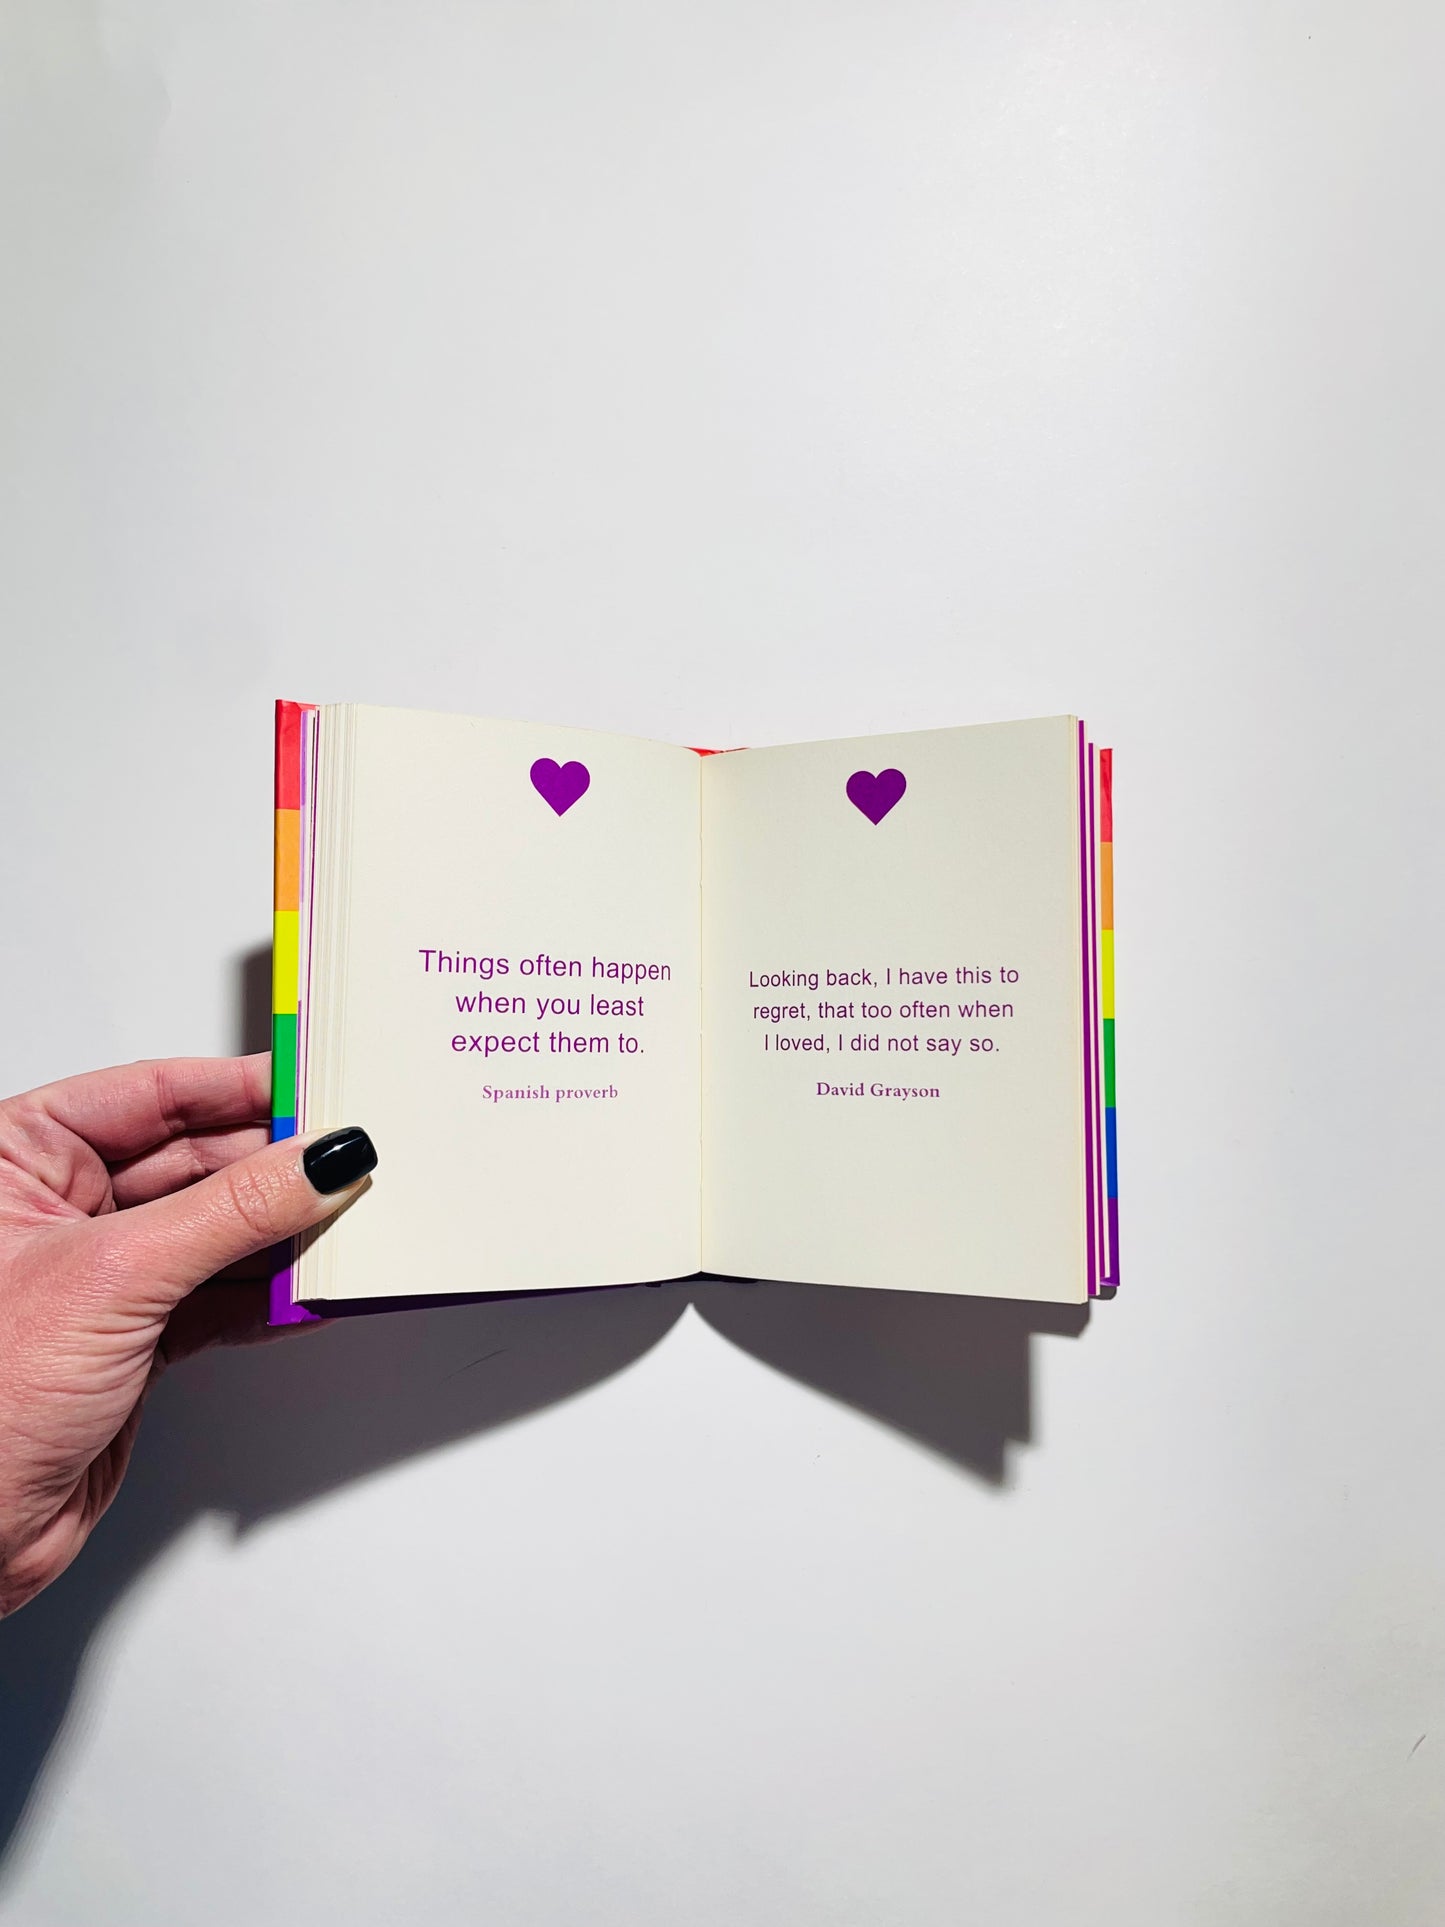 Things often happen
when you least
expect them to.
Spanish proverb
Looking back, I have this to
regret, that too often when
I loved, I did not say so.
David Grayson